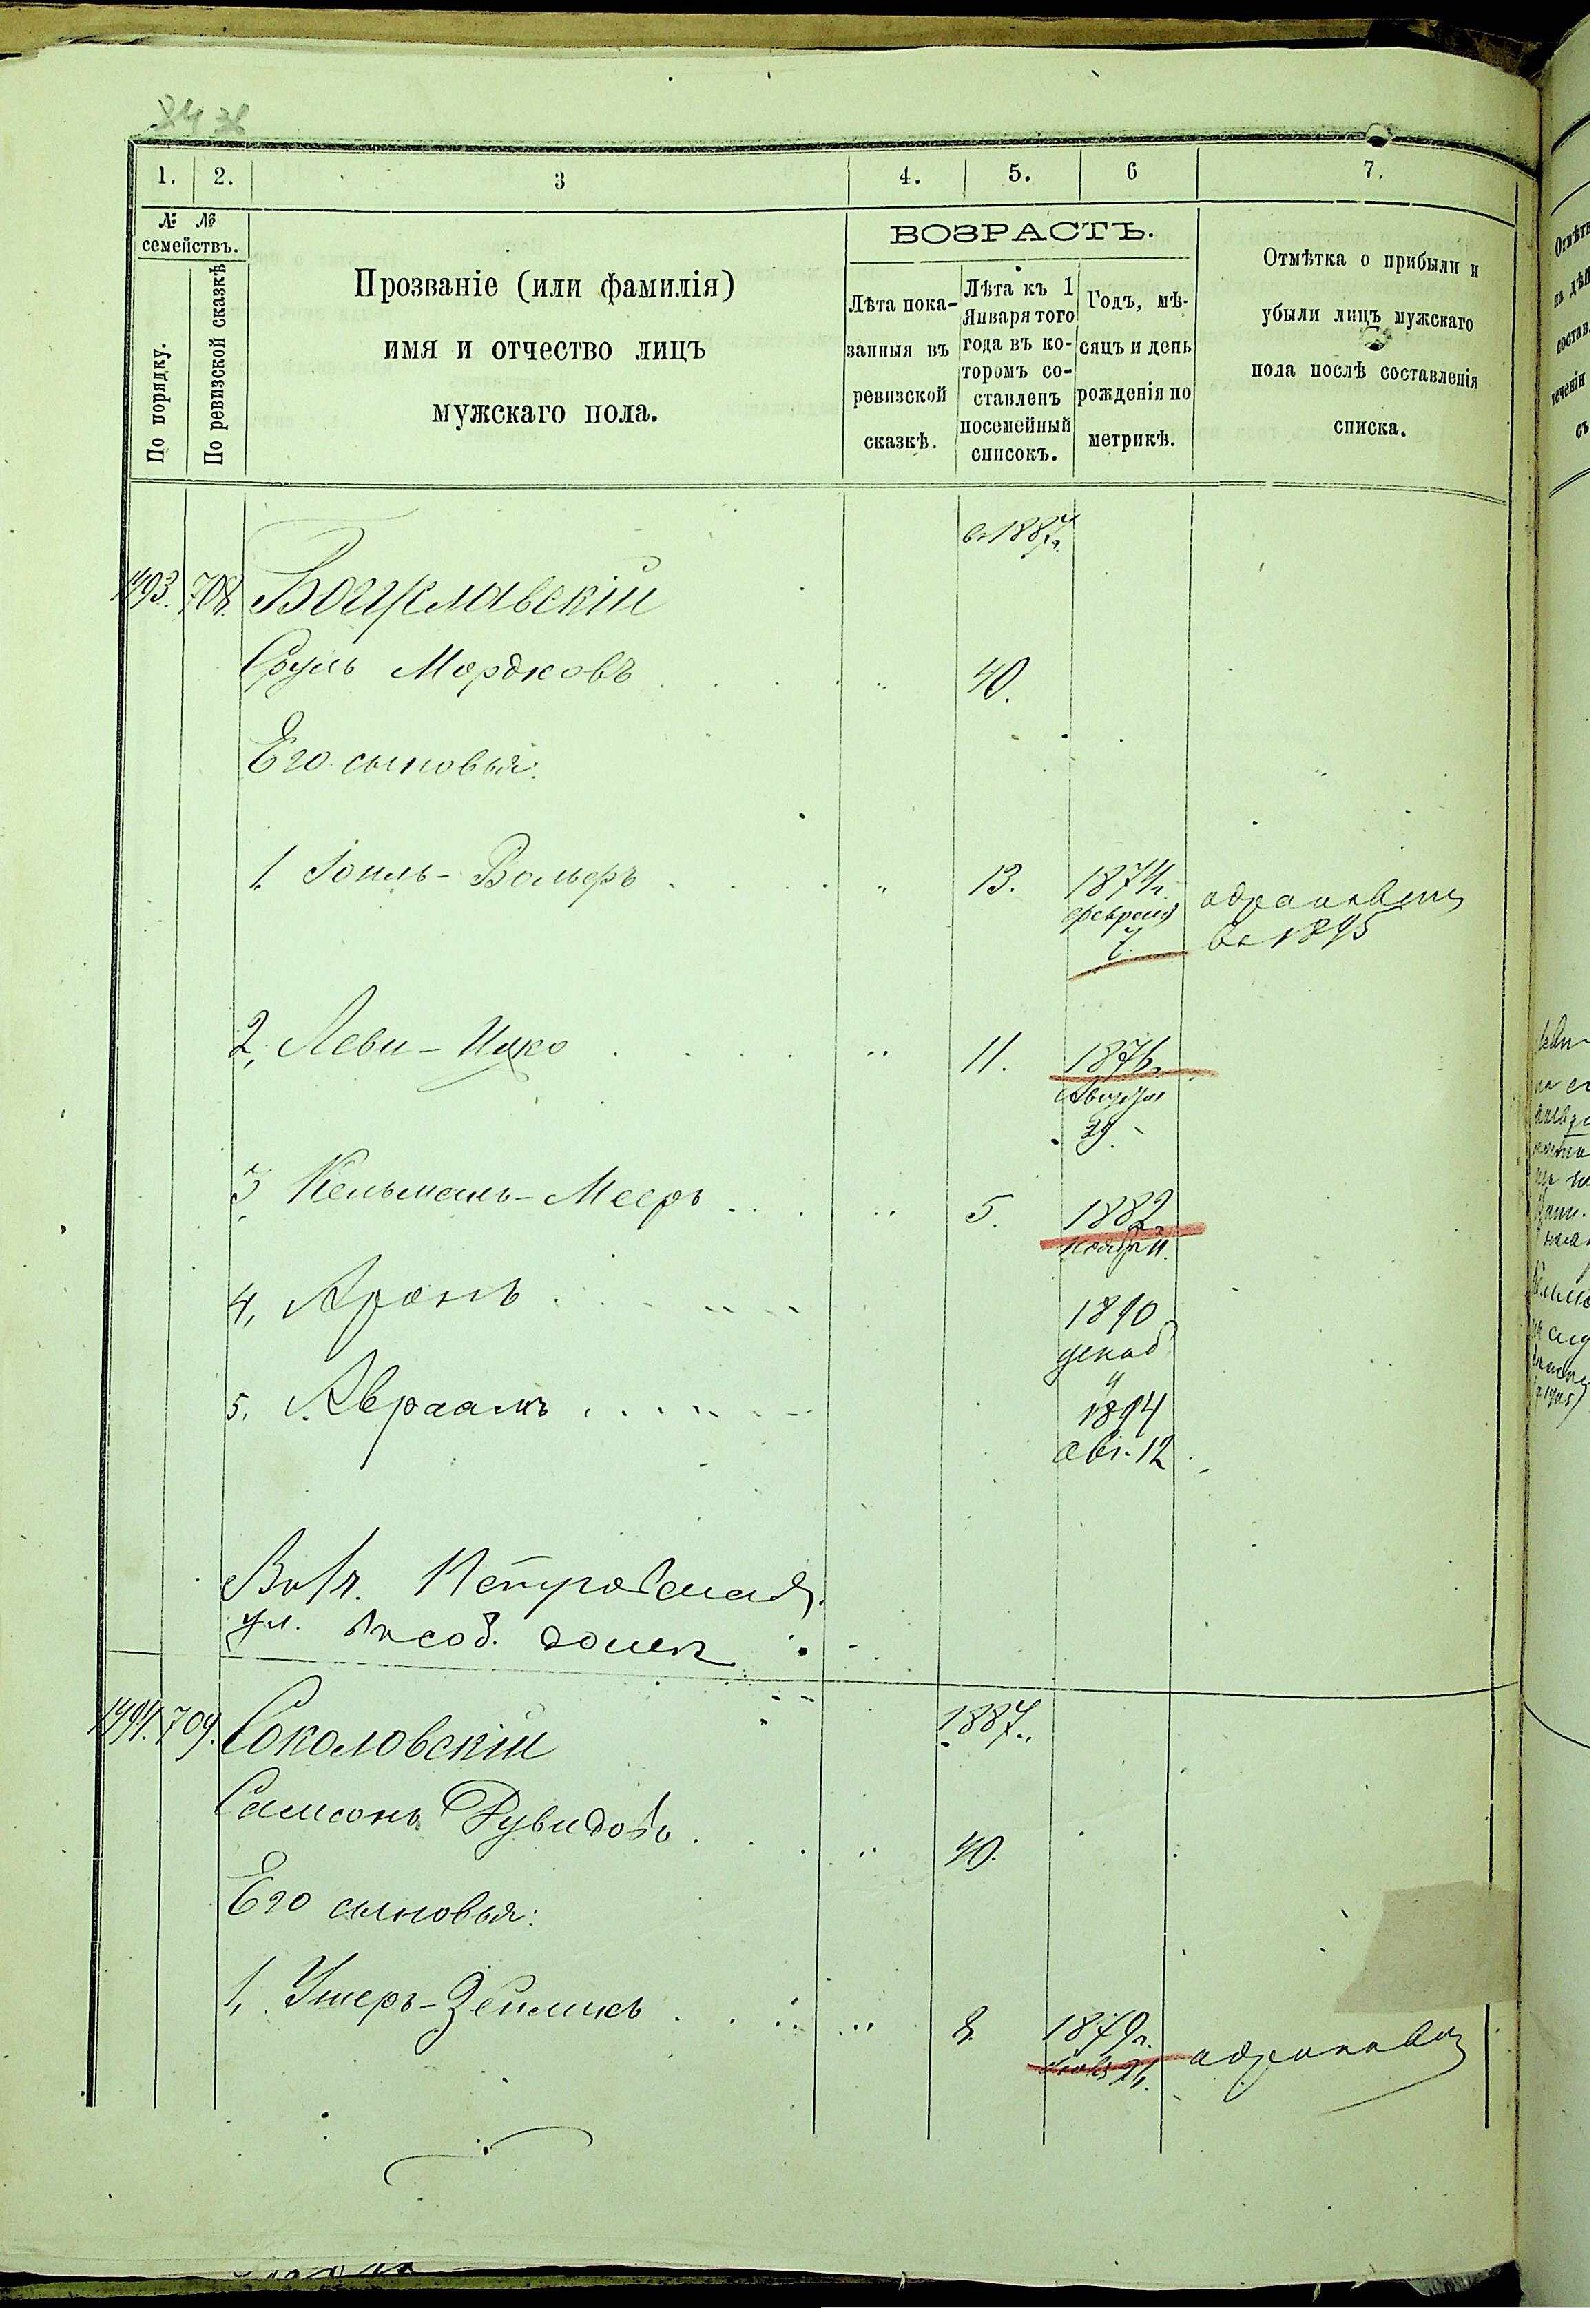 1. 2. 3 4. 5. 6 7.
№ №
семействъ.
По порядку.
По ревизской сказкѣ
Прозваніе (или фамилія)
имя и отчество лицъ
мужскаго пола.
ВОЗРАСТЪ.
Лѣта пока-
занныя въ
ревизской
сказкѣ.
Лѣта къ 1
Января того
года въ ко-
торомъ со-
ставленъ
посемейный
списокъ.
Годъ, мѣ-
сяцъ и день
рожденія по
метрикѣ.
Отмѣтка о прибыли и
убыли лицъ мужскаго
пола послѣ составленія
списка.
1887
1493. 708. Богуславскій
Сруль Мордковъ 40.
Его сыновья:
1. Іоиль-Вольфъ 13. 1874г.
февраля
7.
1895
2, Леви-Ицко 11. 1876г.
Августа
29
3 Кельманъ-Мееръ 5. 1882
Ноябр 11.
4, Аронъ 1890
декаб
5. Авраамъ 1894
авг. 12
Петровская
ул. соб. домъ
1494. 709. Соколовскій 1887г.
Самсонъ Рувидовъ 40.
Его сыновья:
1, Ушеръ-Зейликъ 8. 1879г.